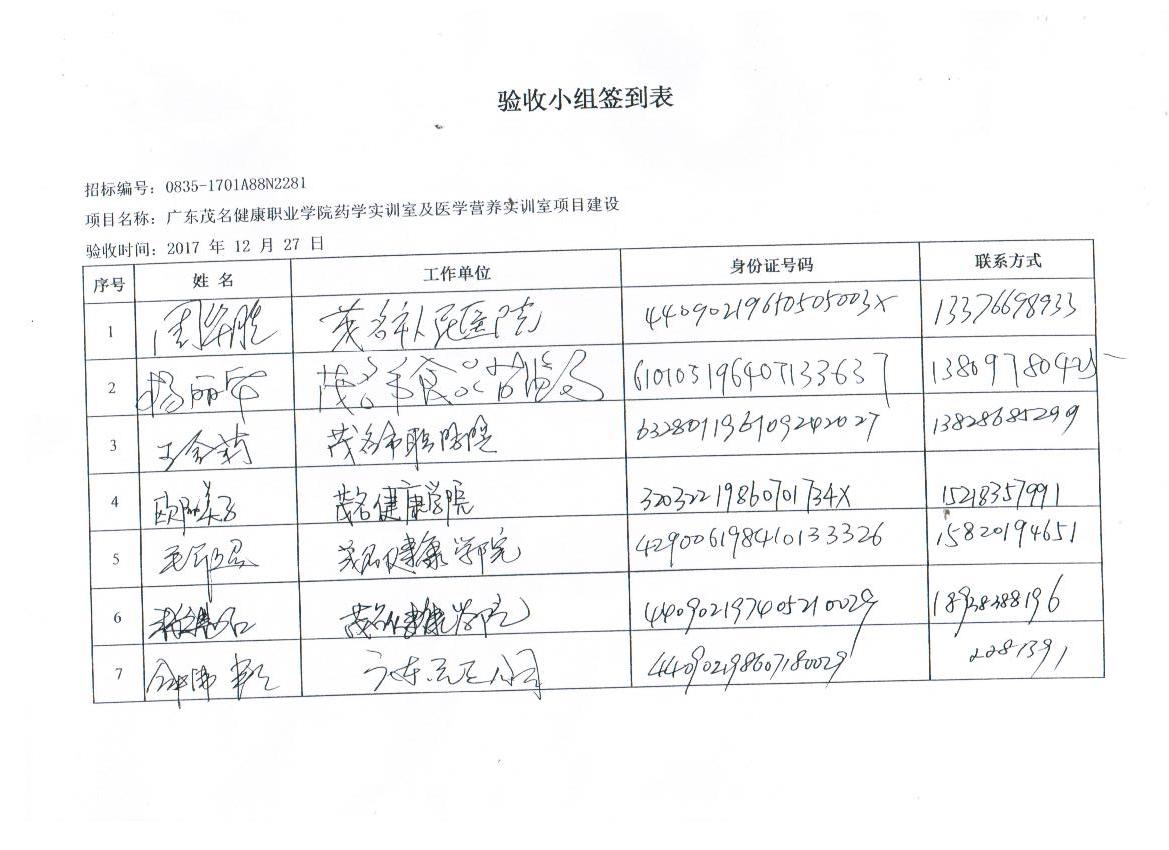 验收小组签到表
招标编号：0835-1701A88N2281
项目名称：广东茂名健康职业学院药学实训室及医学营养实训室项目建设
验收时间：2017 年 12 月 27 日
序号 姓 名 工作单位 身份证号码 联系方式
1 周华胜 茂名市人民医院 44090219650505003X 13376698933
2 杨丽华 610103196407133637
3 王金莉 茂名市职防院 632801196109242027 13828685299
4 欧阳 茂名健康学院 32032219860701734X 15218357991
5 茂名健康学院 429006198410133326 15820194651
6 茂名健康学院 440902197405210029 18938388196
7 公司 440902198607180029 2281391